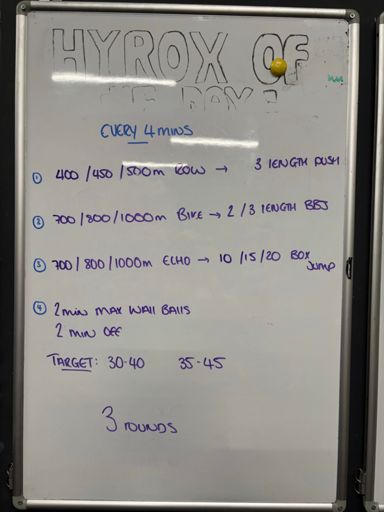 HYROX OF
THE DAY!
EVERY 4 MINS
① 400 / 450 / 500m ROW → 3 LENGTH PUSH
② 700 / 800 / 1000m BIKE → 2 / 3 LENGTH BBJ
③ 700 / 800 / 1000m ECHO → 10 / 15 / 20 BOX JUMP
④ 2 min MAX WALL BALLS
2 MIN OFF
TARGET: 30-40 35-45
3 ROUNDS